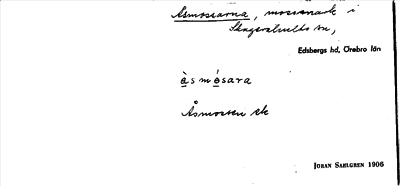 Åsmossarna, mossmark i
Skagershults sn,
Edsbergs hd, Örebro län
às mósara
Åsmossen ek
JORAN SAHLGREN 1906